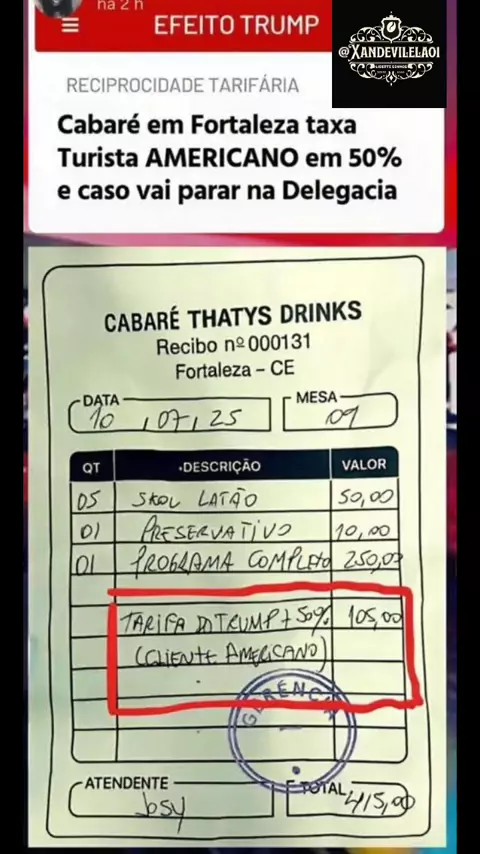 há 2 h
EFEITO TRUMP
@XANDEVILELAOI
RECIPROCIDADE TARIFÁRIA
Cabaré em Fortaleza taxa
Turista AMERICANO em 50%
e caso vai parar na Delegacia
CABARÉ THATYS DRINKS
Recibo nº 000131
Fortaleza – CE
DATA
10 / 07 / 25
MESA
09
QT DESCRIÇÃO VALOR
05 SKOL LATÃO 50,00
01 PRESERVATIVO 10,00
01 PROGRAMA COMPLETO 250,00
TARIFA DO TRUMP + 50% 105,00
(CLIENTE AMERICANO)
GERÊNCIA
ATENDENTE
Josy
TOTAL
415,00